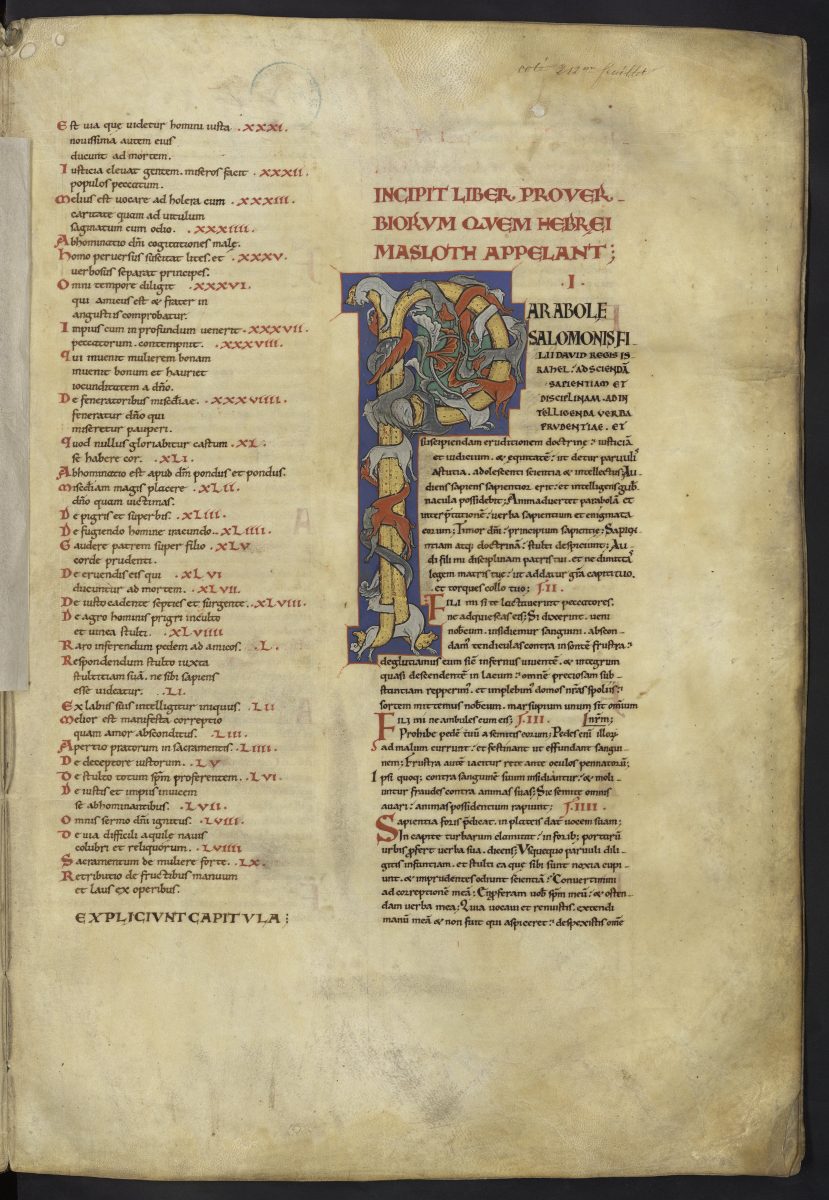 Est uia que uidetur homini iusta .XXXI.
nouissima autem eius
ducunt ad mortem.
Iusticia eleuat gentem. miseros facit .XXXII.
populos peccatum.
Melius est uocare ad holera cum .XXXIII.
caritate quam ad uitulum
saginatum cum odio. .XXXIIII.
Abhominatio dñi cogitationes male.
Homo peruersus suscitat lites. et .XXXV.
uerbosus separat principes.
Omni tempore diligit .XXXVI.
qui amicus est & frater in
angustiis comprobatur.
Impius cum in profundum uenerit .XXXVII.
peccatorum. contempnit. .XXXVIII.
Qui inuenit mulierem bonam
inuenit bonum et hauriet
iocunditatem a dño.
De feneratoribus miscdiae. .XXXVIIII.
feneratur dño qui
miseretur pauperi.
Quod nullus gloriabitur castum .XL.
se habere cor. .XLI.
Abhominatio est apud dm̄ pondus et pondus.
Misc̄diam magis placere .XLII.
dño quam uictimas.
De pigris et superbis. .XLIII.
De fugiendo homine iracundo. .XLIIII.
Gaudere patrem super filio .XLV
corde prudenti.
De eruendis eis qui .XLVI
ducuntur ad mortem. .XLVII.
De iusto cadente septies et surgente. .XLVIII.
De agro hominis prigri inculto
et uinea stulti. .XLVIIII
Raro inferendum pedem ad amicos. .L.
Respondendum stulto iuxta
stultitiam suā. ne sibi sapiens
esse uideatur. .LI.
Ex labiis suis intelligitur iniquus. .LII
Melior est manifesta correptio
quam amor absconditus. .LIII.
Apertio pratorum in sacramentis. .LIIII.
De deceptore iustorum. .LV
De stulto totum sp̄m proferentem. .LVI.
De iustis et impiis inuicem
se abhominantibus. .LVII.
Omnis sermo dñi ignitus. .LVIII.
De uia difficili aquile nauis
colubri et reliquorum. .LVIIII
Sacramentum de muliere forte. .LX.
Retributio de fructibus manuum
et laus ex operibus.
EXPLICIVNT CAPITVLA;
INCIPIT LIBER PROVER-
BIORVM QVEM HEBREI
MASLOTH APPELANT;
.I.
PARABOLE
SALOMONIS FI-
LII DAVID REGIS IS-
RAHEL. AD SCIENDĀ
SAPIENTIAM ET
DISCIPLINAM. AD IN
TELLIGENDA VERBA
PRVDENTIAE. ET
suscipiendam eruditionem doctrine. iusticiā
et iudicium. & equitatē. ut detur paruulis
astutia. adolescenti scientia & intellectus; Au-
diens sapiens sapientior erit. et intelligens gub̄-
nacula possidebit; Animaduertet parabolā et
interp̄tationē. uerba sapientium et enigmata
eorum; Timor dñi. principium sapientie; Sapien-
tiam atq; doctrinā. stulti despiciunt; Au-
di fili mi disciplinam patris tui. et ne dimittas
legem matris tue. ut addatur gr̄a capiti tuo.
et torques collo tuo; .II.
Fili mi si te lactauerint peccatores.
ne adquiescas eis; Si dixerint. ueni
nobcum. insidiemur sanguini. abscon-
dam' tendiculas contra insontē frustra.
deglutiamus eum sic̄ infernus uiuentē. & integrum
quasi descendentē in lacum. omnē preciosam sub-
stantiam repperim'. et implebim' domos nr̄as spoliis.
sortem mitte nobcum. marsupium unum sit omnium
Fili mi ne ambules cum eis; .III. nr̄m;
Prohibe pedē tuū a semitis eorum; Pedes eni illorum
ad malum currunt. et festinant ut effundant sangui-
nem; Frustra autē iacitur rete ante oculos pennatorū;
Ipsi quoq; contra sanguinē suum insidiantur. & moli-
untur fraudes contra animas suas; Sic semite omnis
auari. animas possidentium rapiunt; .IIII.
Sapientia foris p̄dicat. in plateis dat uocem suam;
In capite turbarum clamitat. in forib; portarū
urbis p̄fert uerba sua. dicens; Vsquequo paruuli dili-
gitis infantiam. et stulti ea que sibi sunt noxia cupi-
unt. & imprudentes odiunt scientiā; Conuertimini
ad correptionē meā; En p̄feram uob spm̄ meū. & osten-
dam uerba mea; Quia uocaui et renuistis. extendi
manū meā & non fuit qui aspiceret. despexistis omē